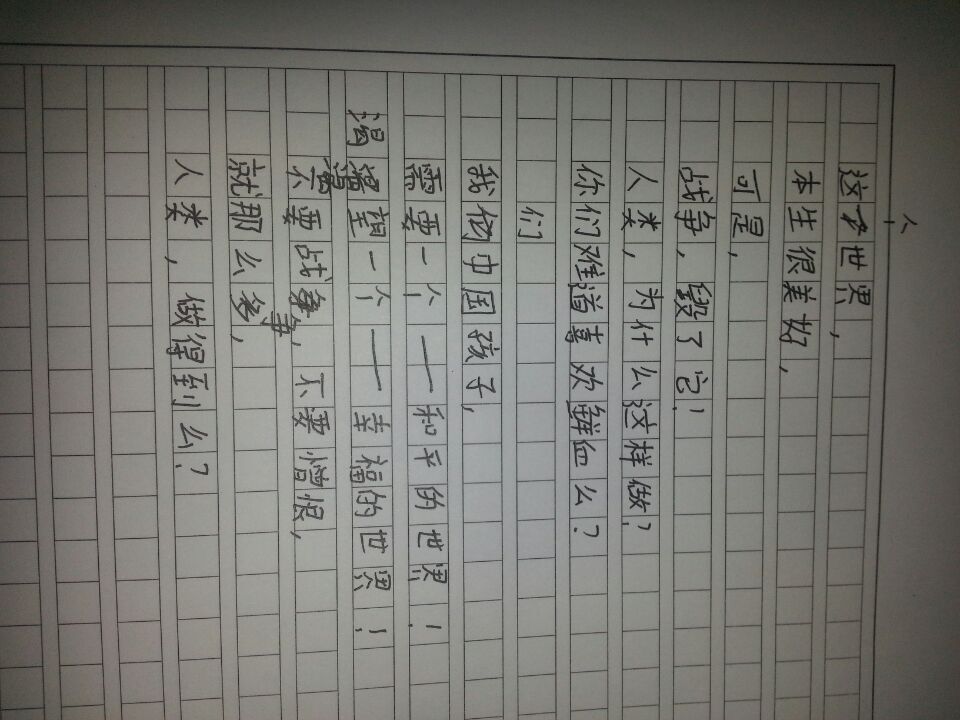 这个世界，
本生很美好，
可是，
战争，毁了它！
人类，为什么这样做？
你们难道喜欢鲜血么？
我们中国孩子，
需要一个——和平的世界！
渴望一个——幸福的世界！
不要战争，不要憎恨，
就那么多，
人类，做得到么？